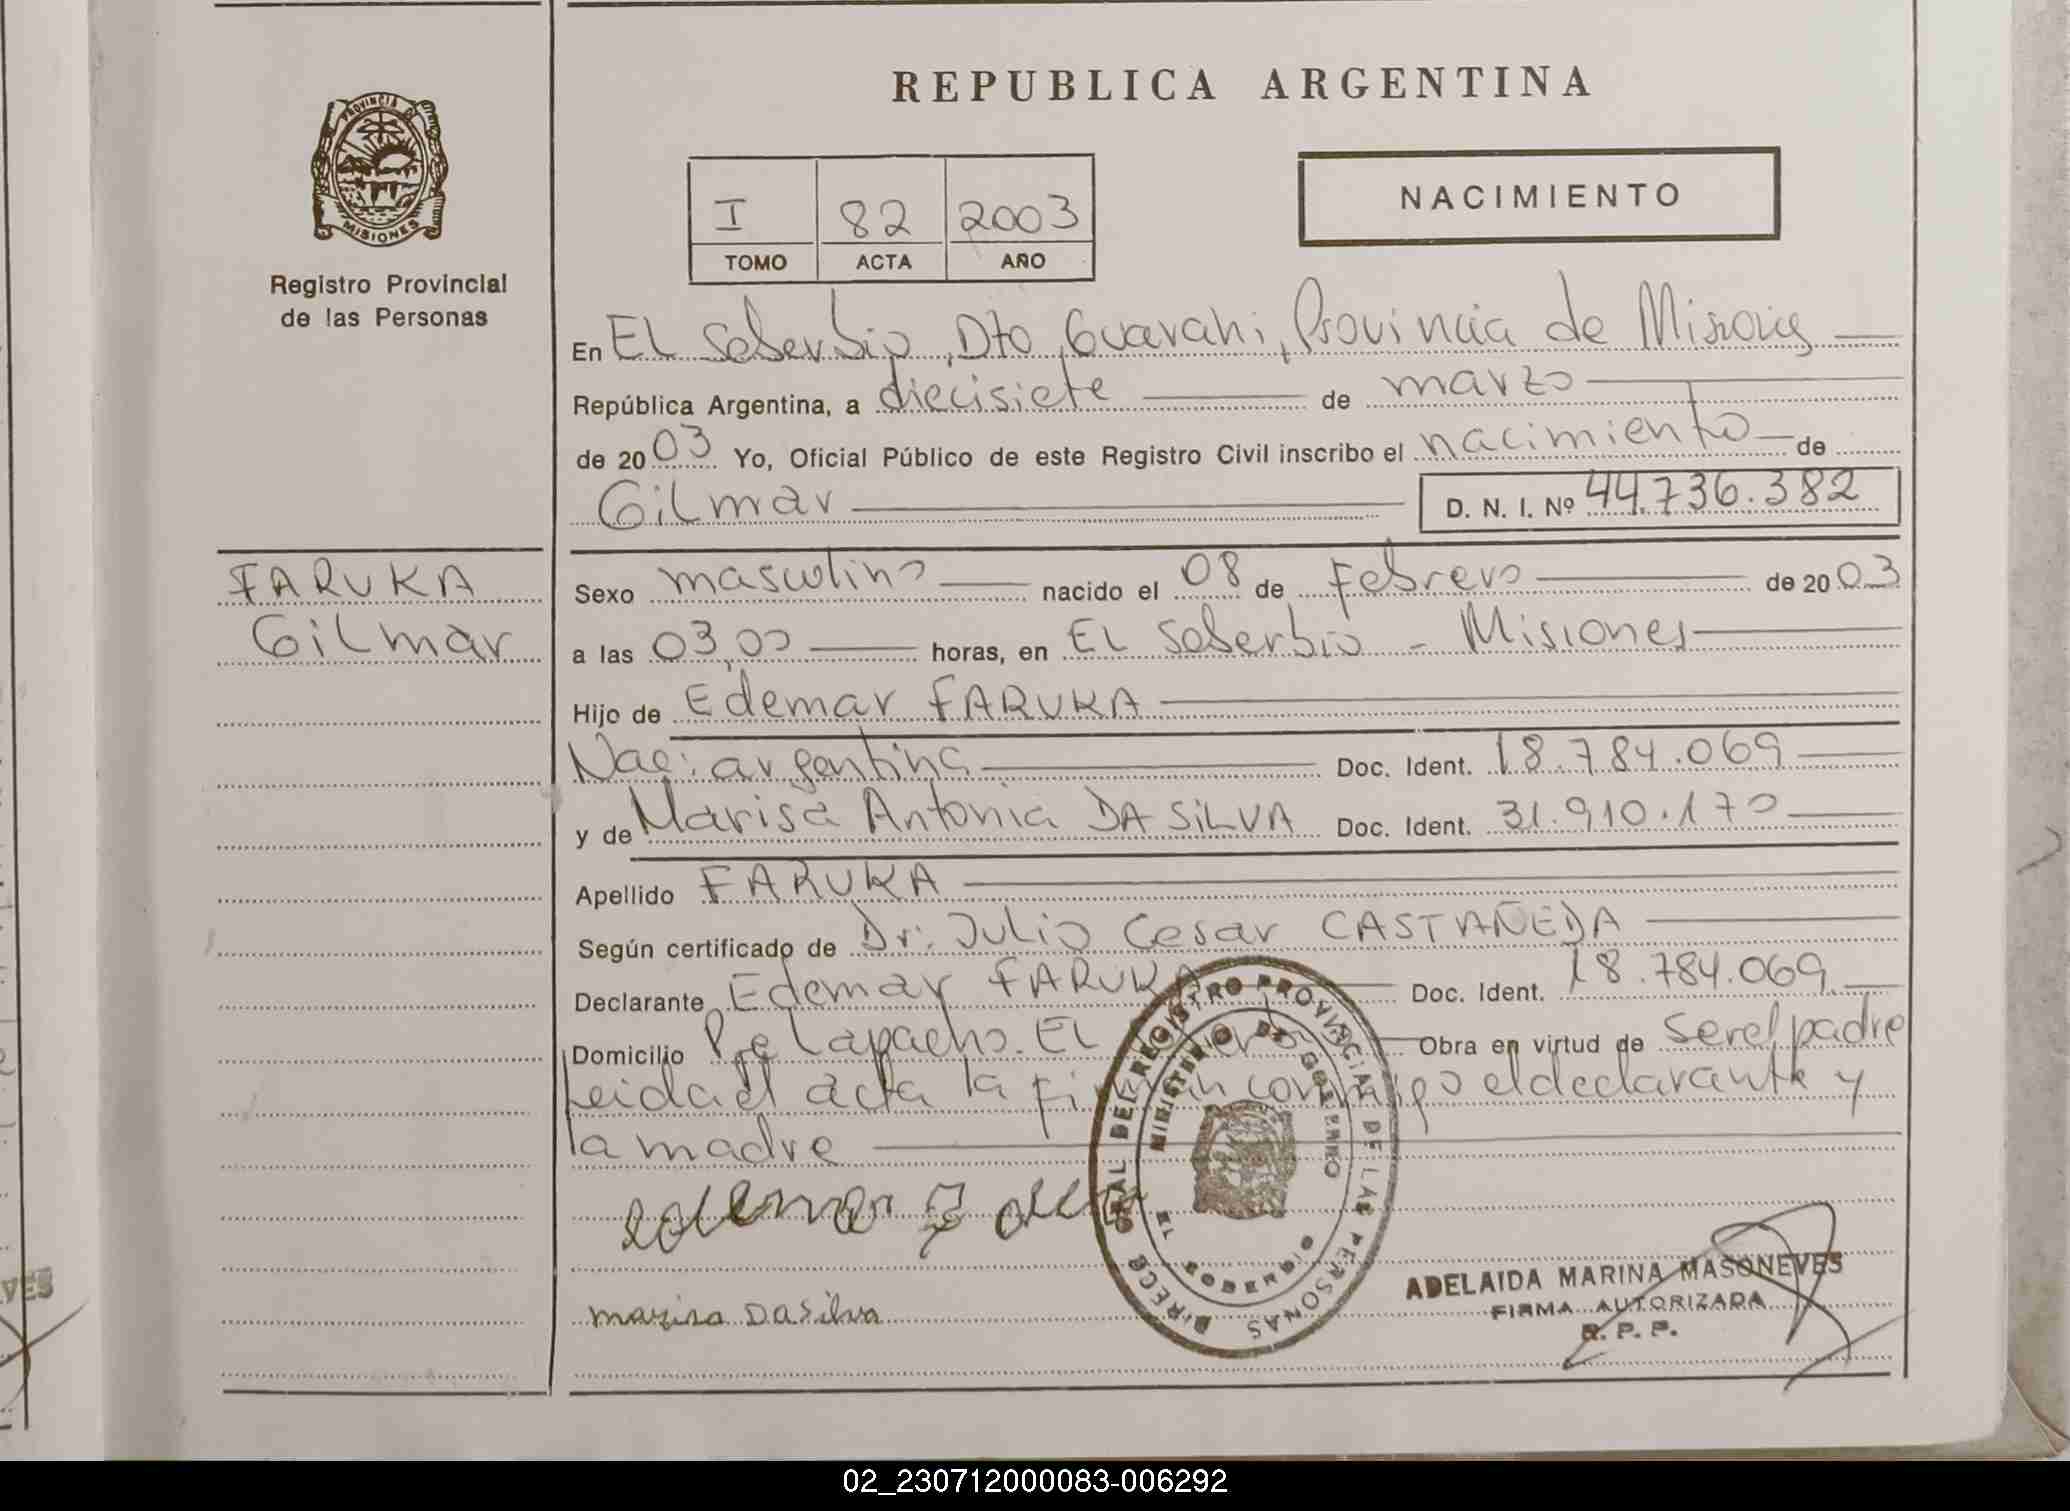 REPUBLICA ARGENTINA
PROVINCIA DE
MISIONES
Registro Provincial
de las Personas
I 82 2003
TOMO ACTA AÑO
NACIMIENTO
En EL Soberbio, Dto, Guarani, Provincia de Misiones
República Argentina, a diecisiete de marzo
de 2003 Yo, Oficial Público de este Registro Civil inscribo el nacimiento de
Gilmar D. N. I. Nº 44.736.382
FARUKA
Gilmar
Sexo masculino nacido el 08 de Febrero de 2003
a las 03,00 horas, en EL Soberbio - Misiones
Hijo de Edemar FARUKA
Nac: argentina Doc. Ident. 18.784.069
y de Marisa Antonia DA SILVA Doc. Ident. 31.910.170
Apellido FARUKA
Según certificado de Dr: Julio Cesar CASTAÑEDA
Declarante Edemar FARUKA Doc. Ident. 18.784.069
Domicilio Pje Lapacho. EL Obra en virtud de ser el padre
Leida el acta la firman conmigo el declarante y
la madre
DIRECC GRAL DEL REGISTRO PROVINCIAL DE LAS PERSONAS
MINISTERIO DE GOBIERNO
EL SOBERBIO
marisa DaSilva
ADELAIDA MARINA MASONEVES
FIRMA AUTORIZADA
R. P. P.
VES
02_230712000083-006292